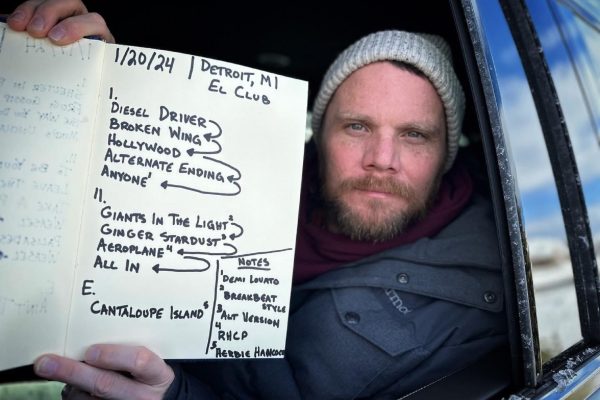 1/20/24 | DETROIT, MI
EL CLUB
I.
DIESEL DRIVER
BROKEN WING
HOLLYWOOD
ALTERNATE ENDING
ANYONE¹
II.
GIANTS IN THE LIGHT²
GINGER STARDUST³
AEROPLANE⁴
ALL IN
E.
CANTALOUPE ISLAND⁵
NOTES
¹DEMI LOVATO
²BREAKBEAT
STYLE
³ALT VERSION
⁴RHCP
⁵HERBIE HANCOCK